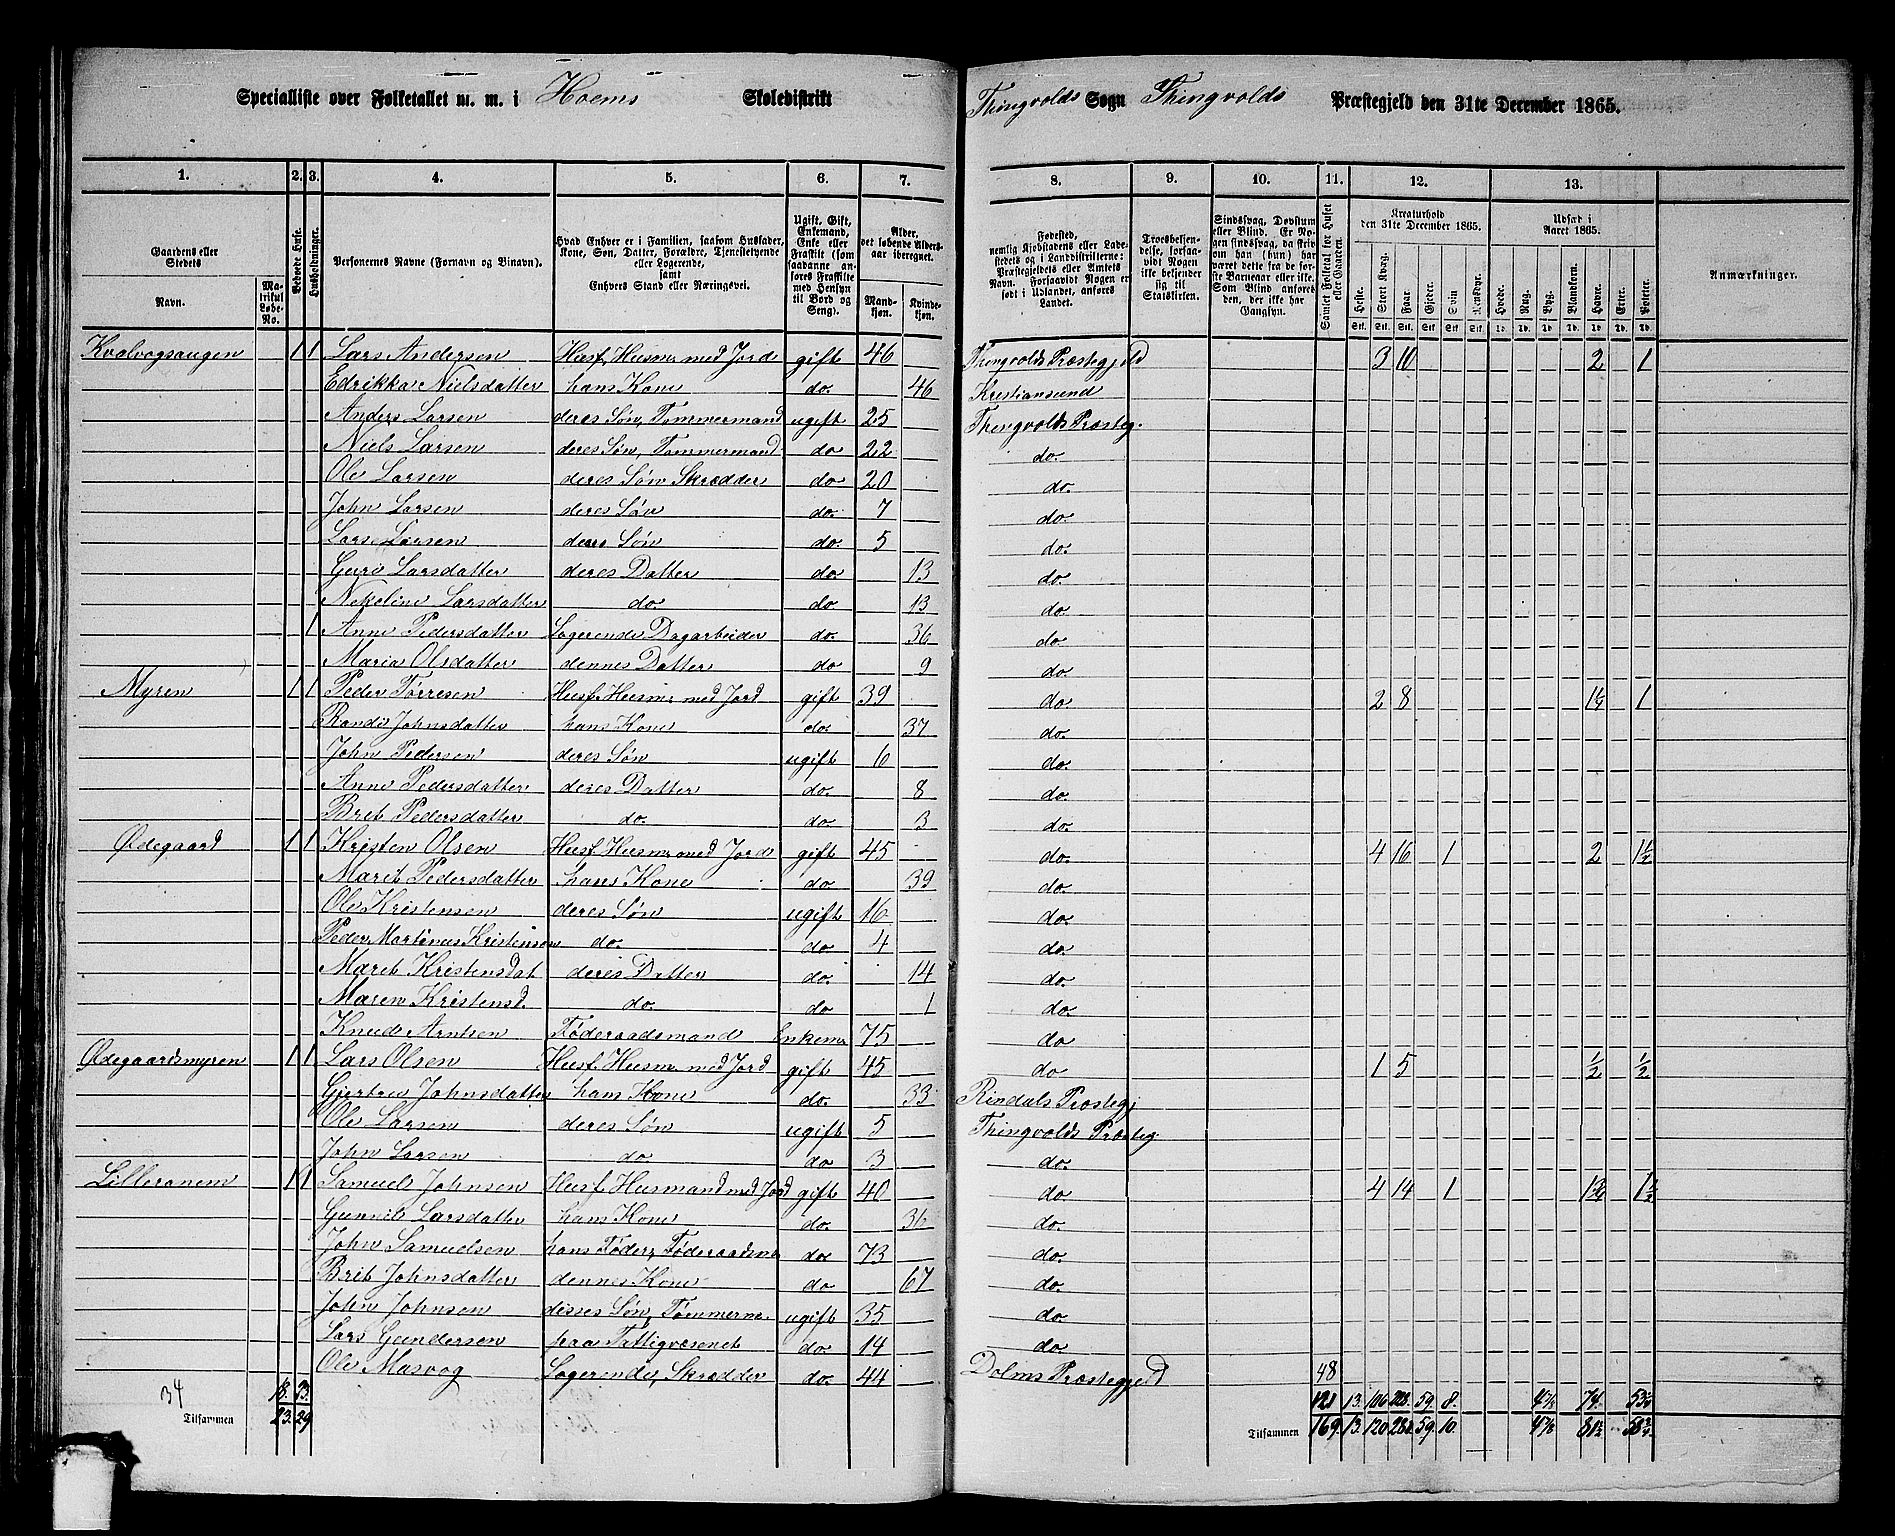 Specialliste over Folketallet m. m. i Hoems Skoledistrikt Thingvolds Sogn Thingvolds Præstegjeld den 31te December 1865.
1. 2. 3. 4. 5. 6. 7. 8. 9. 10. 11. 12. 13.
Gaardens eller Stedets Navn. Matrikul Løbe-No. Beboede Huse. Husholdninger. Personernes Navne (Fornavn og Tilnavn). Hvad Enhver er i Familien, saasom Husfader, Kone, Søn, Datter, Forældre, Tjenestetyende eller Logerende, samt Enhvers Stand eller Næringsvei. Ugift, Gift, Enkemand, Enke eller Fraskilt (som saadanne anføres Fraskilte med Hensyn til Bord og Seng). Alder, det løbende Alders-aar iberegnet. Mand-kjøn. Kvinde-kjøn.
Fødested, nemlig Kjøbstadens eller Ladestedets og i Landdistrikterne: Præstegjeldets eller Amtets Navn. Forsaavidt Nogen er født i Udlandet, anføres Landet. Troesbekjendelse, forsaavidt Nogen ikke bekjender sig til Statskirken. Sindssvag, Døvstum eller Blind. Er Nogen sindssvag, da skrives om han (hun) har været dette fra de første Barneaar eller ikke. Som Blind anføres den, der ikke har Gangsyn. Samlet Folketal for Huset eller Gaarden. Kreaturhold den 31te December 1865. Udsæd i Aaret 1865. Anmærkninger.
Heste. Stort Kvæg. Faar. Gjeder. Svin. Rensdyr. Hvede. Rug. Byg. Blandkorn. Havre. Erter. Poteter.
Kvalvogsaugen 1 1 Lars Andersen Husf. Husm. med Jord gift 46 Thingvolds Præstegjeld 3 10 2 1
Edrikka Nielsdatter hans Kone do. 46 Kristiansund
Anders Larsen deres Søn, Tømmermand ugift 25 Thingvolds Præsteg.
Niels Larsen deres Søn, Tømmermand do 22 do.
Ole Larsen deres Søn Skrædder do 20 do.
John Larsen deres Søn do. 7 do.
Lars Larsen deres Søn do. 5 do.
Guri Larsdatter deres Datter do 13 do.
Nekoline Larsdatter do do 13 do.
1 Anne Pedersdatter Logerende Dagarbeider do. 36 do.
Maria Olsdatter dennes Datter do 9 do.
Myren 1 1 Peder Torresen Husf. Husm. med Jord gift 39 do 2 8 1¼ 1
Randi Johnsdatter hans Kone do. 37 do.
John Pedersen deres Søn ugift 6 do.
Anne Pedersdatter deres Datter do. 8 do.
Brit Pedersdatter do. do. 3 do.
Ødegaard 1 1 Kristen Olsen Husf. Husm. med Jord gift 45 do. 4 16 1 2 1½
Marit Pedersdatter hans Kone do 39 do.
Ole Kristensen deres Søn ugift 16 do.
Peder Martinus Kristensen do. do 4 do.
Marit Kristensdat deres Datter do. 14 do.
Maren Kristensd. do. do 1 do.
Knud Arntsen Føderaadsmand Enkem. 75 do
Ødegaardsmyren 1 1 Lars Olsen Husf. Husm. med Jord gift 45 do 1 5 ½ ½
Gjertrud Johnsdatter hans Kone do. 33 Rindals Præstegj
Ole Larsen deres Søn ugift 5 Thingvolds Præsteg.
John Larsen do. do 3 do.
Lilleranem 1 1 Samuel Johnsen Husf. Husmand med Jord gift 40 do 4 14 1 1¾ 1½
Gunnil Larsdatter hans Kone do. 36 do.
John Samuelsen hans Fader, Føderaadsm. do 73 do.
Brit Johnsdatter dennes Kone do 67 do.
John Johnsen disses Søn, Tømmerm. ugift 35 do.
Lars Gundersen paa Fattigvæsenet do 14 do.
Ole Masvog Logerende, Skrædder do. 44 Dolms Præstegjeld 48
34 18. 23. 121 13. 106 59. 8. 74
Tilsammen 23. 29 Tilsammen 169. 13. 120 59. 10.